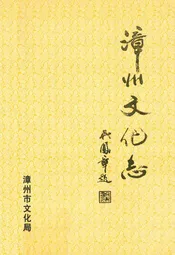 漳州文化志
漳州市文化局